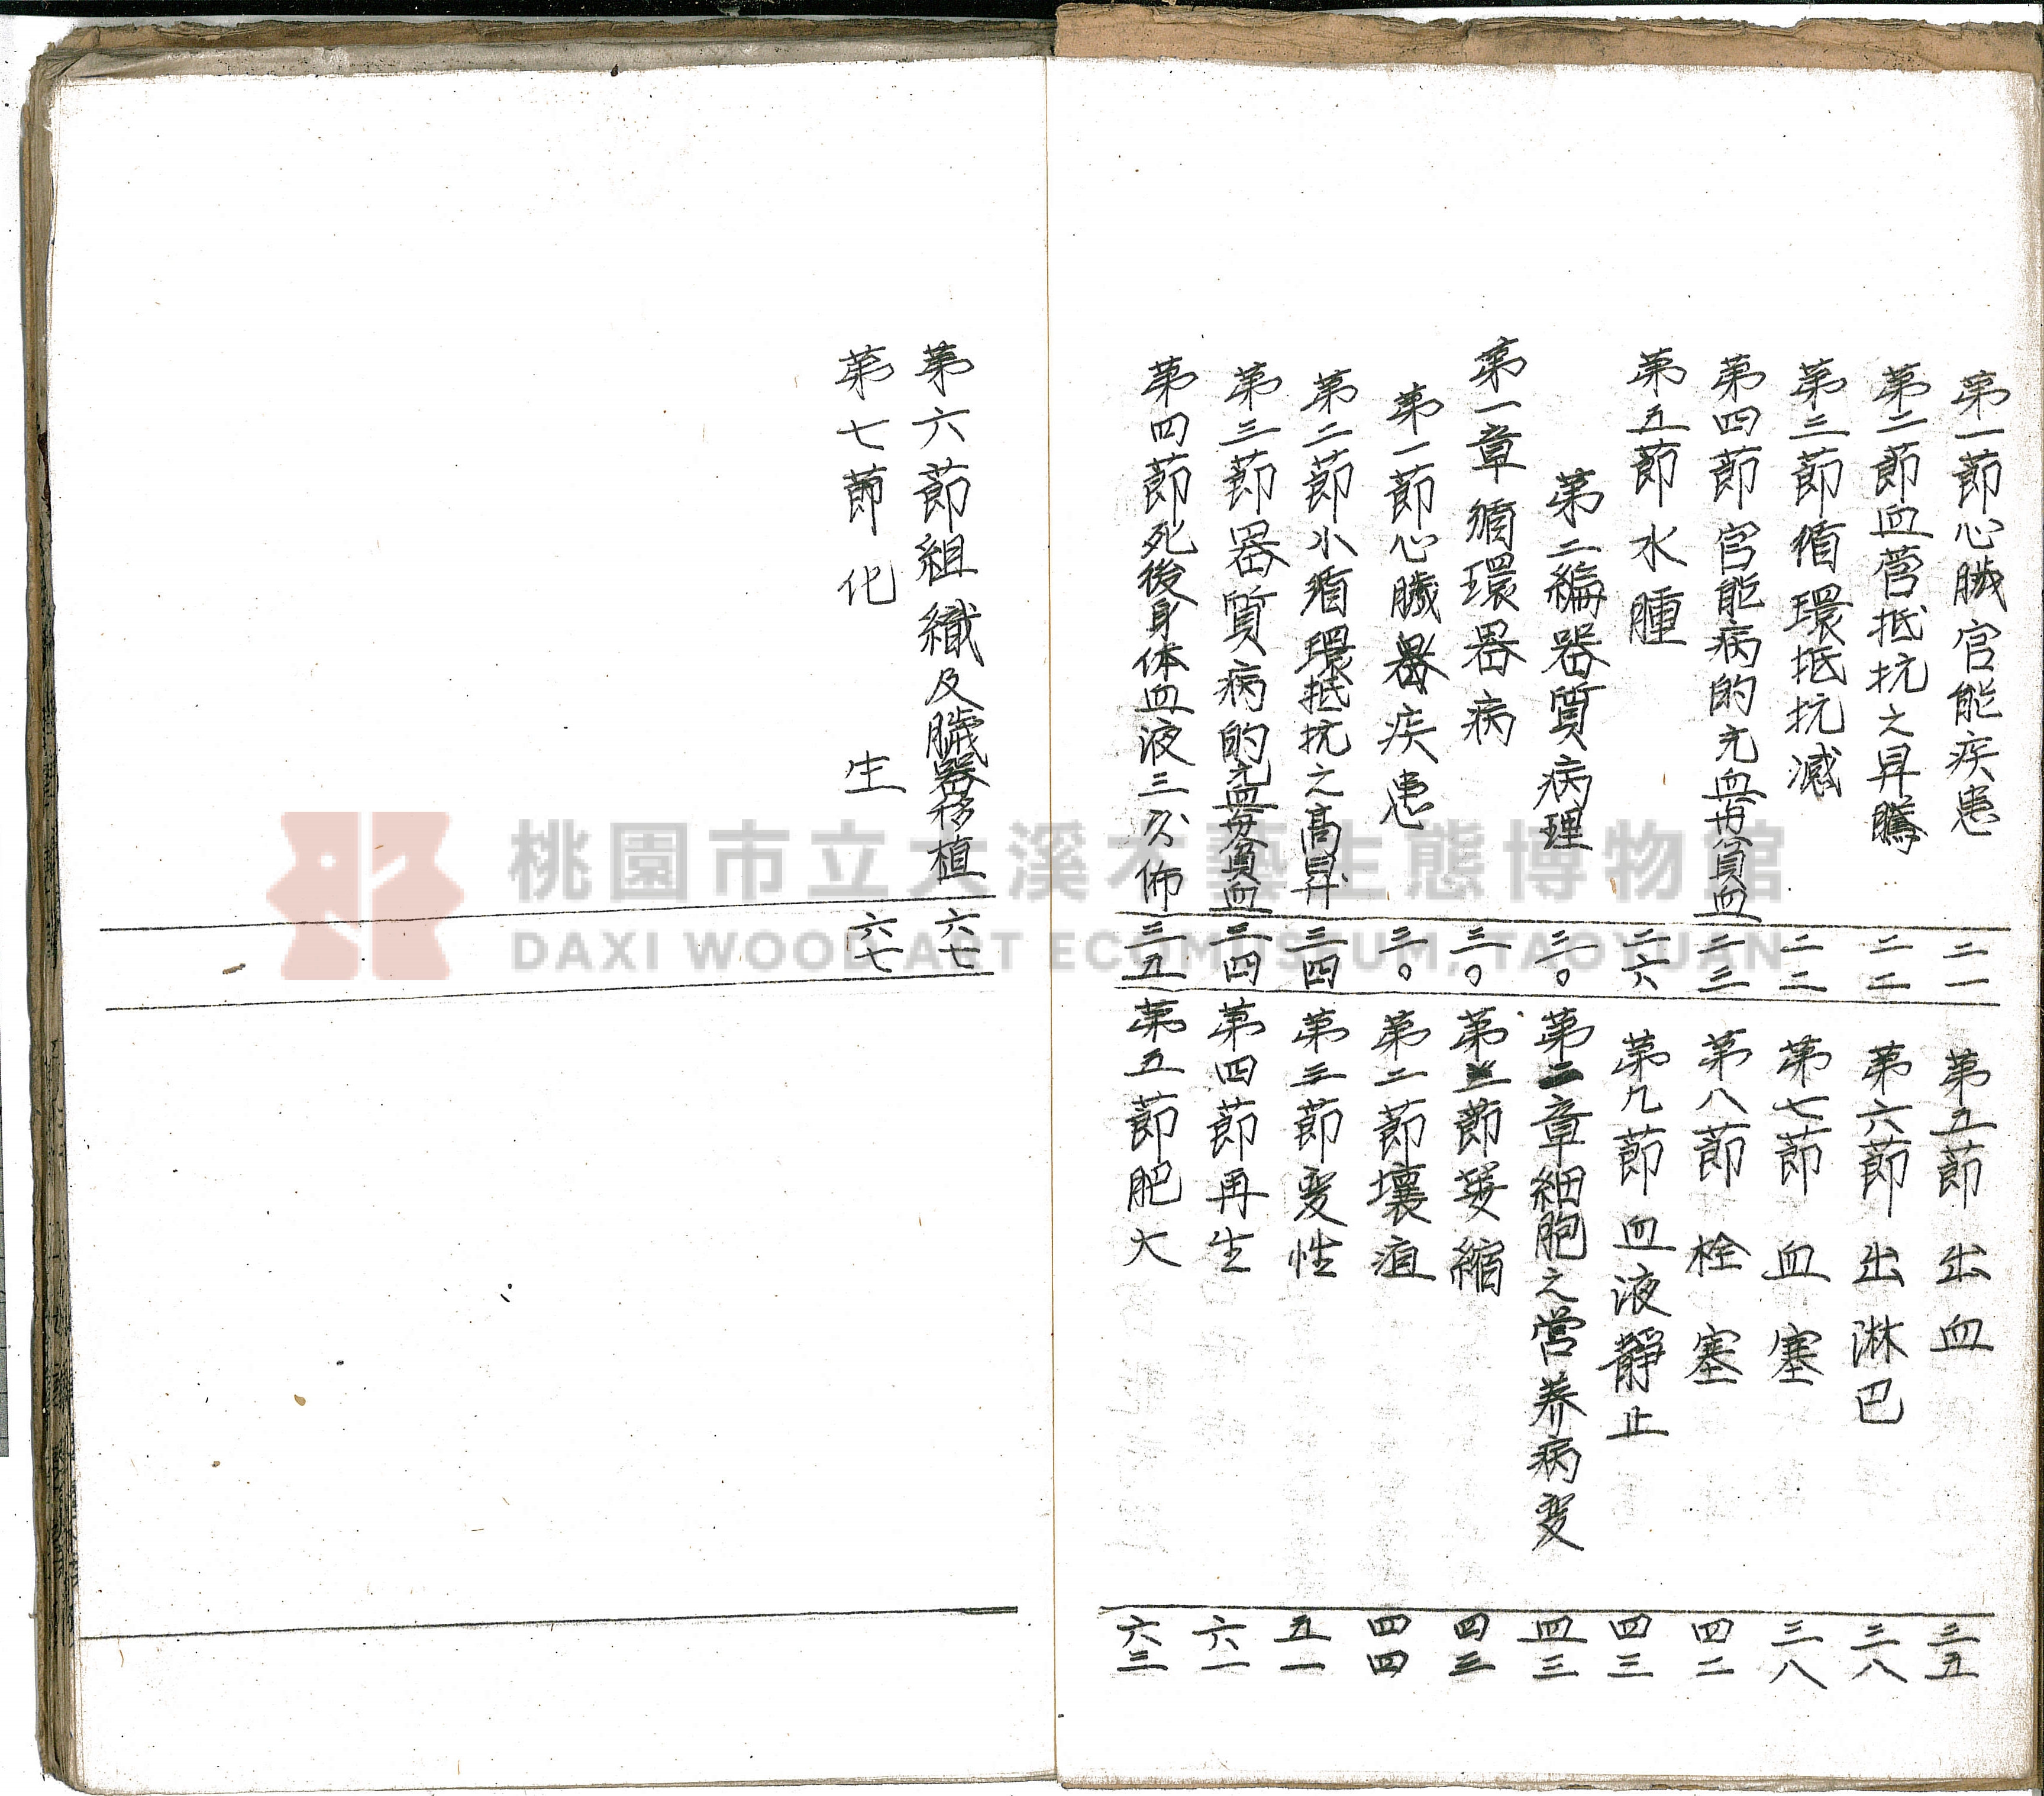 第一節心臓官能疾患 二一
第二節血管抵抗之昇騰 二二
第三節循環抵抗減 二二
第四節官能病的充血及貧血 二三
第五節水腫 二六
第二編器質病理 三〇
第一章循環器病 三〇
第一節心臓器疾患 三〇
第二節小循環抵抗之高昇 三四
第三節器質病的充血及貧血 三四
第四節死後身体血液三分佈 三五
第五節出血 三五
第六節出淋巴 三八
第七節血塞 三八
第八節栓塞 四二
第九節血液靜止 四三
第二章細胞之营养病変 四三
第一節萎縮 四三
第二節壊疽 四四
第三節変性 五一
第四節再生 六一
第五節肥大 六三
第六節組織及臓器移植 六七
第七節化生 六七
桃園市立大溪木藝生態博物館
DAXI WOOD ART ECOMUSEUM, TAOYUAN